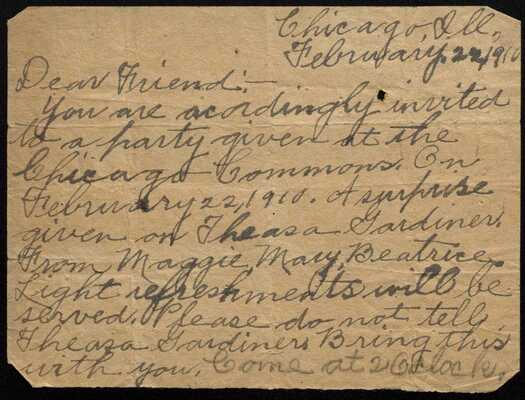 Chicago, Ill.,
February, 22, 1910
Dear Friend:-
You are acordingly invited
to a party given at the
Chicago Commons. On
February 22, 1910. A surprise
given on Theasa Gardiner.
From Maggie Mary, Beatrice
Light refreshments will be
served. Please do not tell
Theasa Gardiner. Bring this
with you. Come at 2 O'Clock.